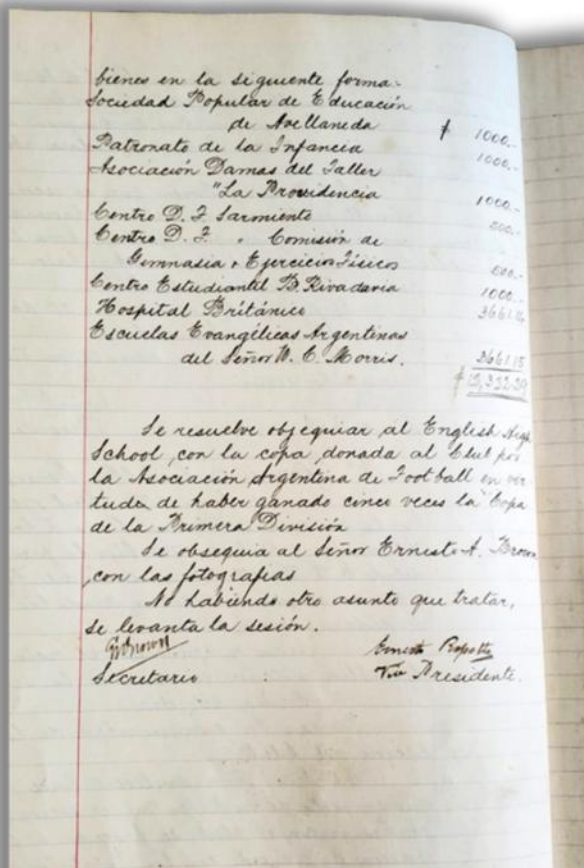 bienes en la siguiente forma.
Sociedad Popular de Educación
de Avellaneda $ 1000.-
Patronato de la Infancia 1000.-
Asociación Damas del Taller
"La Providencia 1000.-
Centro D. F. Sarmiento 500.-
Centro D. F. " Comisión de
Gimnasia y Ejercicios Físicos 500.-
Centro Estudiantil B. Rivadavia 1000.-
Hospital Británico 3661.14
Escuelas Evangélicas Argentinas
del Señor W. C. Morris. 3661.15
$ 12,322.29
Se resuelve obsequiar al English High
School con la copa donada al Club por
la Asociación Argentina de Football en vir
tude de haber ganado cinco veces la Copa
de la Primera División
Se obsequia al Señor Ernesto A. Brown
con las fotografias
No habiendo otro asunto que tratar,
se levanta la sesión.
Brown Ernesto
Secretario Vice Presidente.